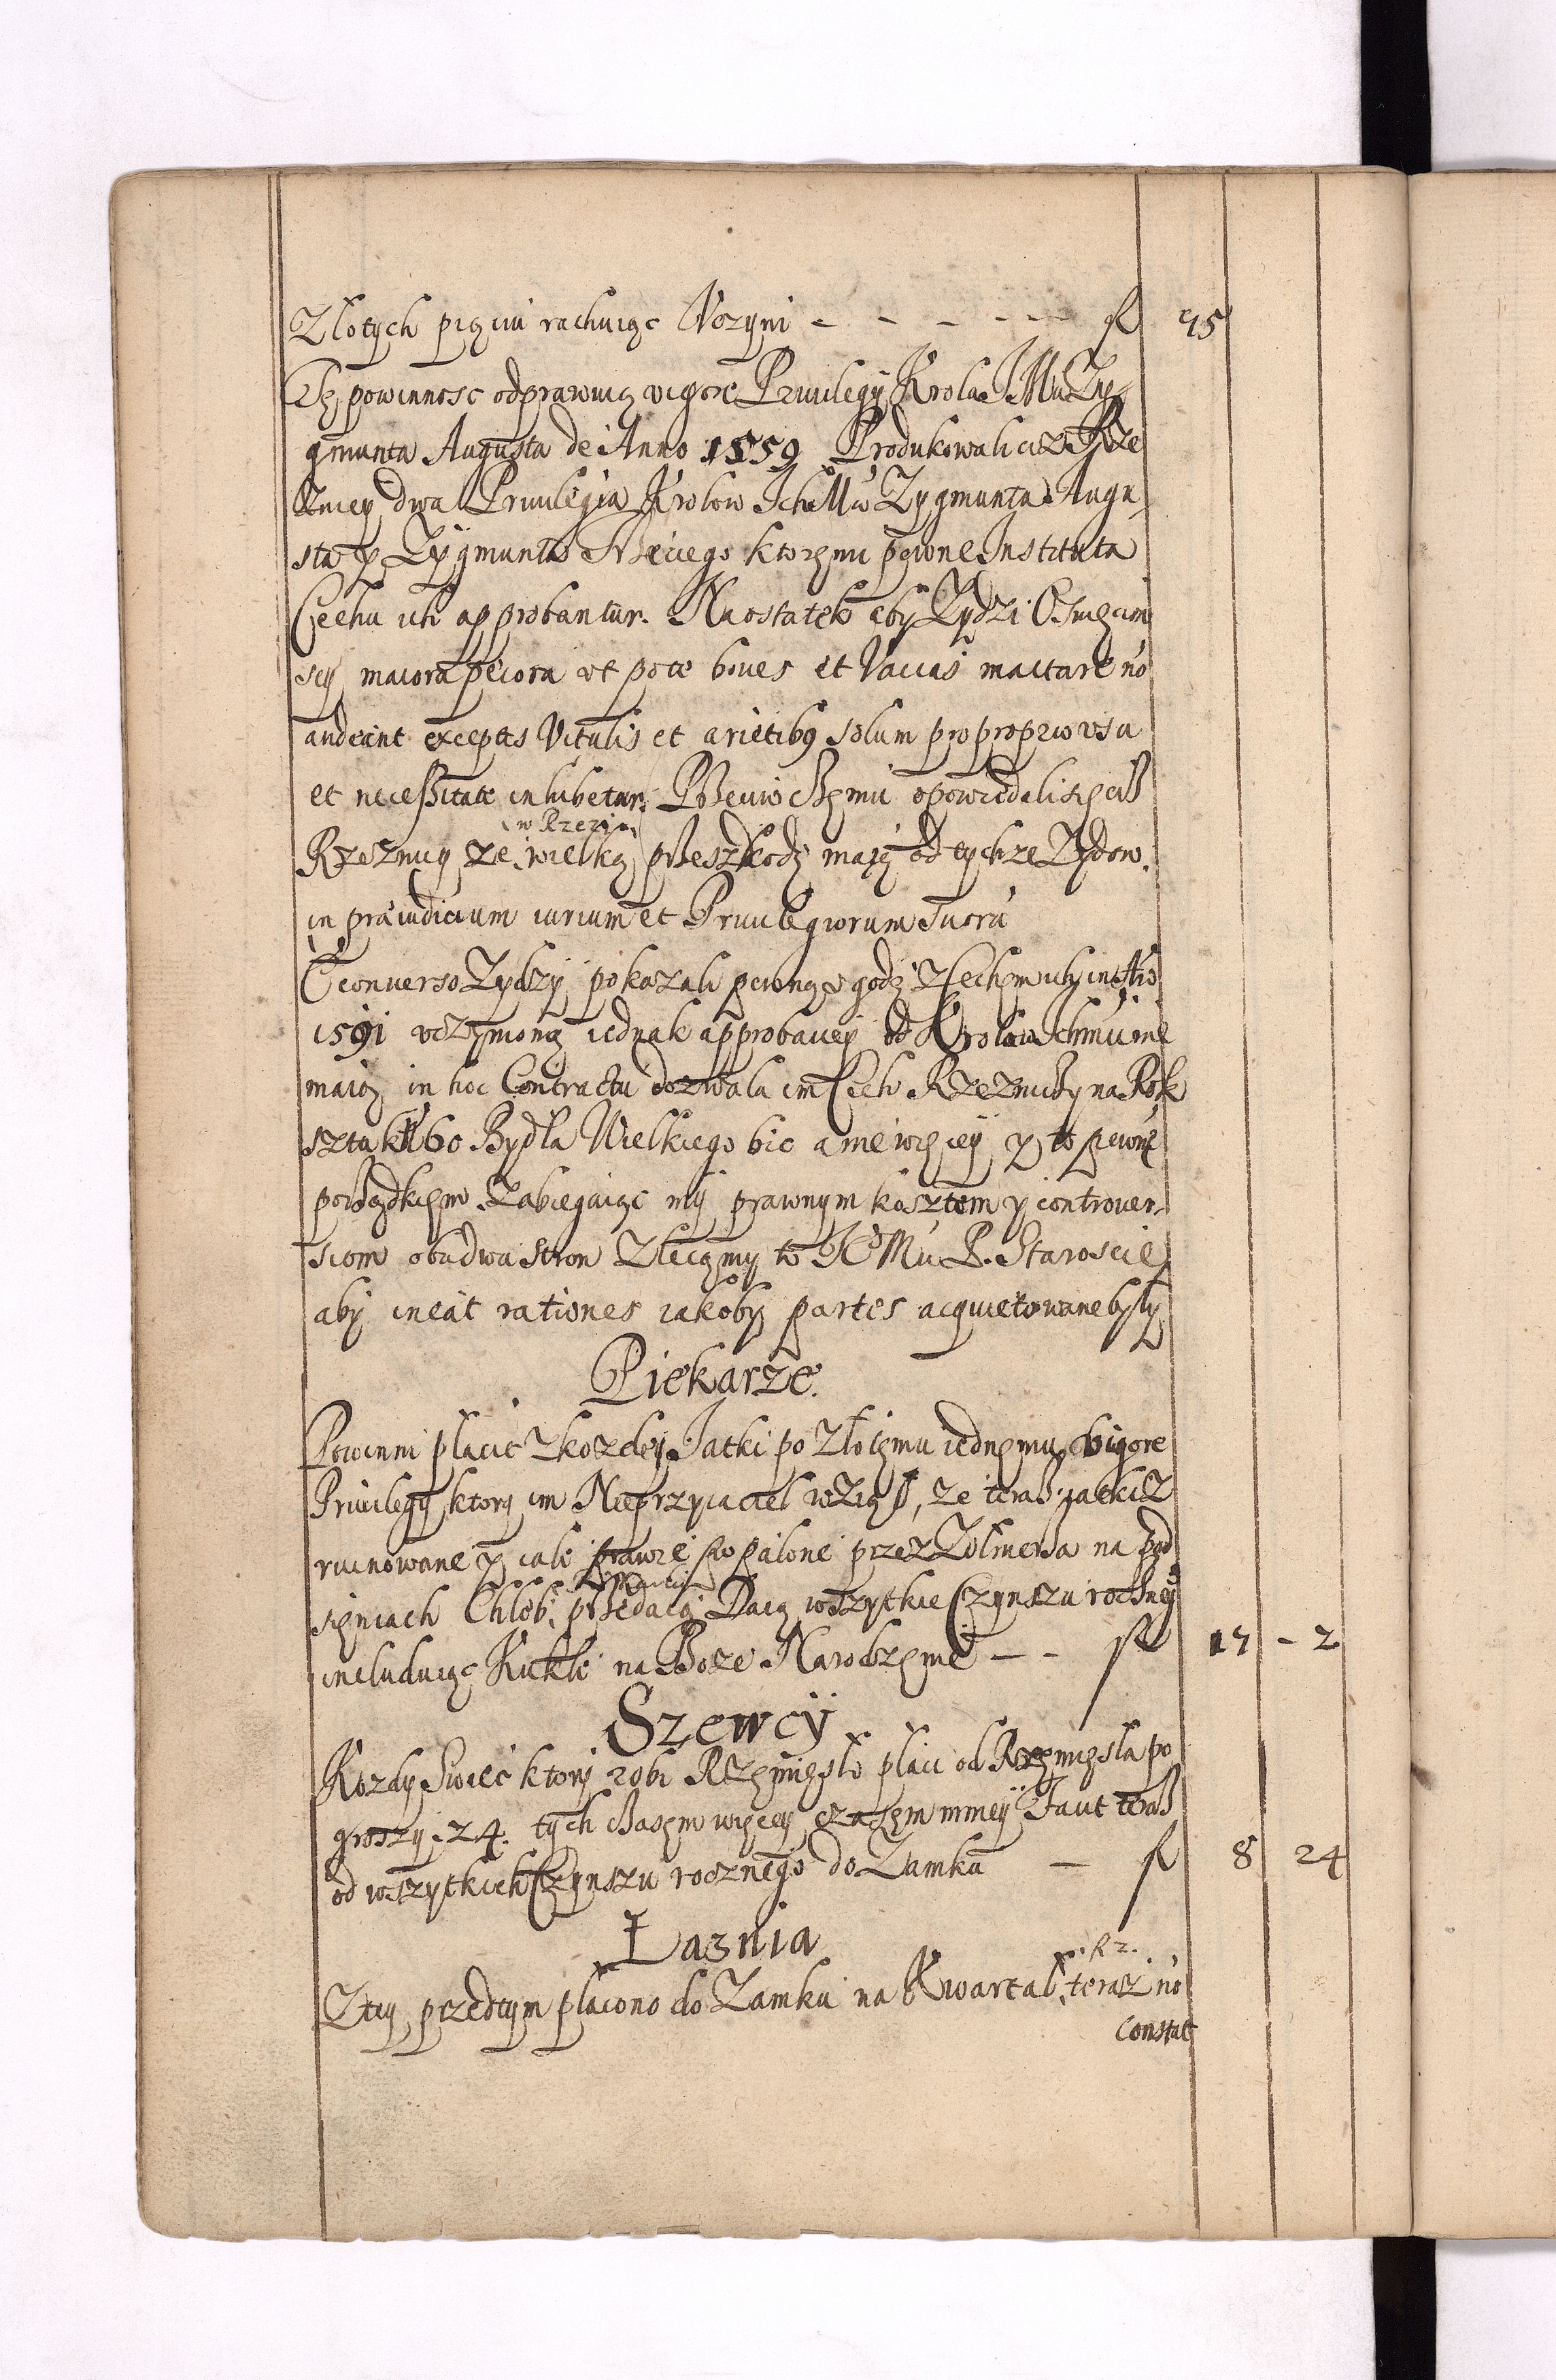 Złotych pięciu rachuiąc Uczyni - - - - - - fl 95
Tę powinnosc odprawuią vigore Priuilegÿ Krola JMci Zy-
gmunta Augusta de Anno 1559 Produkowali ciż Rze
znicy dwa Priuilegia Krolow Ich Mci Zygmunta Augu-
sta y Zygmunta Trzeciego ktoremi pewne Instituta
Cechu ich approbantur. Naostatek aby Zydzi Oswięcim
scy maiora pecora ut pote boues et Vaccas mactare nō
audeant exceptis Vitulis et arietibq solum pro proprio usu
et necessitate inhibetur. Przeciw czemu opowiedali się ciż
Rzeznicy ze wielką w Rzezi przeszkodę maią od tychze Zydow.
in præiudicium iurium et Priuilegiorum suorū
E conuerso Zydzy pokazali pewną ugodę z Cechem ich in Aō
1591 uczynioną iednak approbacyi od Krolow Ichmci nie
maią in hoc Contractu dozwala im Cech Rzeznicky na Rok
sztuk 60 Bydła Wielkiego bic a niewięcey y to pewnÿ
porządkiem. Zabiegaiąc my prawnym kosztom y controuer-
siom obudwu stron Zlecamy to JeoMci P. Staroscie
aby ineat rationes iakoby partes acquietowane były
Piekarze.
Powinni płacic z kozdey Jatki po Złotemu iednemu vigore
Priuilegÿ ktory im Nieprzyiaciel wziął, ze teraz iatki z
ruinowane y cale prawie popalone przez Zołnierza na pod
sieniach Chleb przedaią Daią wszytkie Czynszu rocznego
includuiąc Kukle na Boze Narodzenie - - fl 17 - 2
Szewcÿ
Kozdy Swiec ktory robi Rzemięsło płaci od Rzemięsla po
groszy 24. tych czasem więcey czasem mniey Facit teraz
od wszytkich Czynszu rocznego do Zamku - fl 8 24
Łaznia
Ztey przedtym płacono do Zamku na Kwartał fl 2. teraz nō
Constat